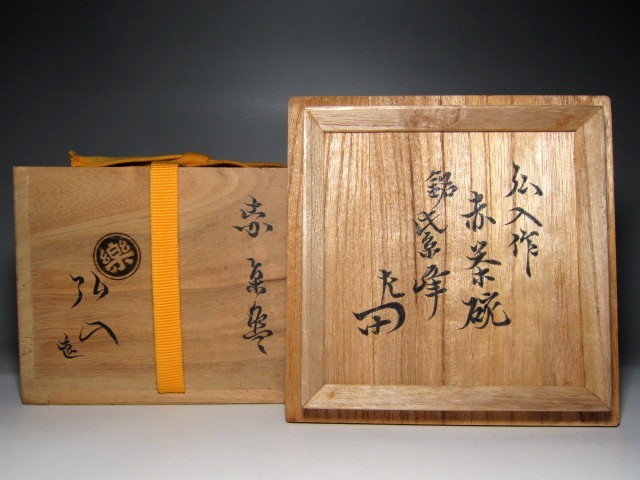 弘入作
赤茶碗
銘 紫峰
赤茶碗
樂
弘入
造